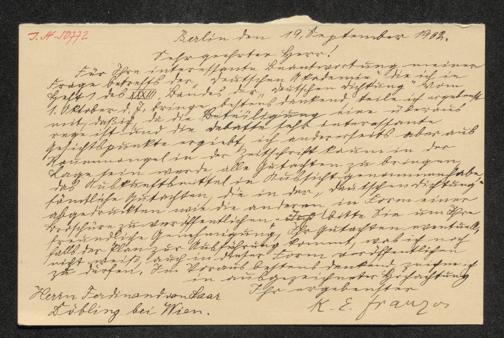 I.N. 50772
Berlin den 19. September 1902.
Sehr geehrter Herr!
Für Ihre interessante Beantwortung meiner
Frage betreffs der "Deutschen Akademie", die ich in
Heft 1 des XXXIII. Bandes der "Deutschen Dichtung" vom
1. Oktober d. J. bringe, bestens dankend, teile ich ergebenst
mit, daß, da die Beteiligung eine überaus
rege ist und die Debatte sehr interessante
Gesichtspunkte ergibt, ich anderseits aber aus
Raummangel in der Zeitschrift kaum in der
Lage sein werde alle Gutachten zu bringen,
das Auskunftsmittel in Aussicht genommen habe,
sämtliche Gutachten, die in der "Deutschen Dichtung"
abgedruckten wie die anderen, in Form einer
Broschüre zu veröffentlichen. Ich bitte Sie um Ihre
freundliche Genehmigung, Ihr Gutachten eventuell,
falls der Plan zur Ausführung kommt, was ich noch
nicht weiß, auch in dieser Form veröffentlichen
zu dürfen. Im Voraus bestens dankend, zeichne ich
in ausgezeichneter Hochachtung
Ihr ergebenster
K. E. Franzos
Herrn Ferdinand von Saar
Döbling bei Wien.